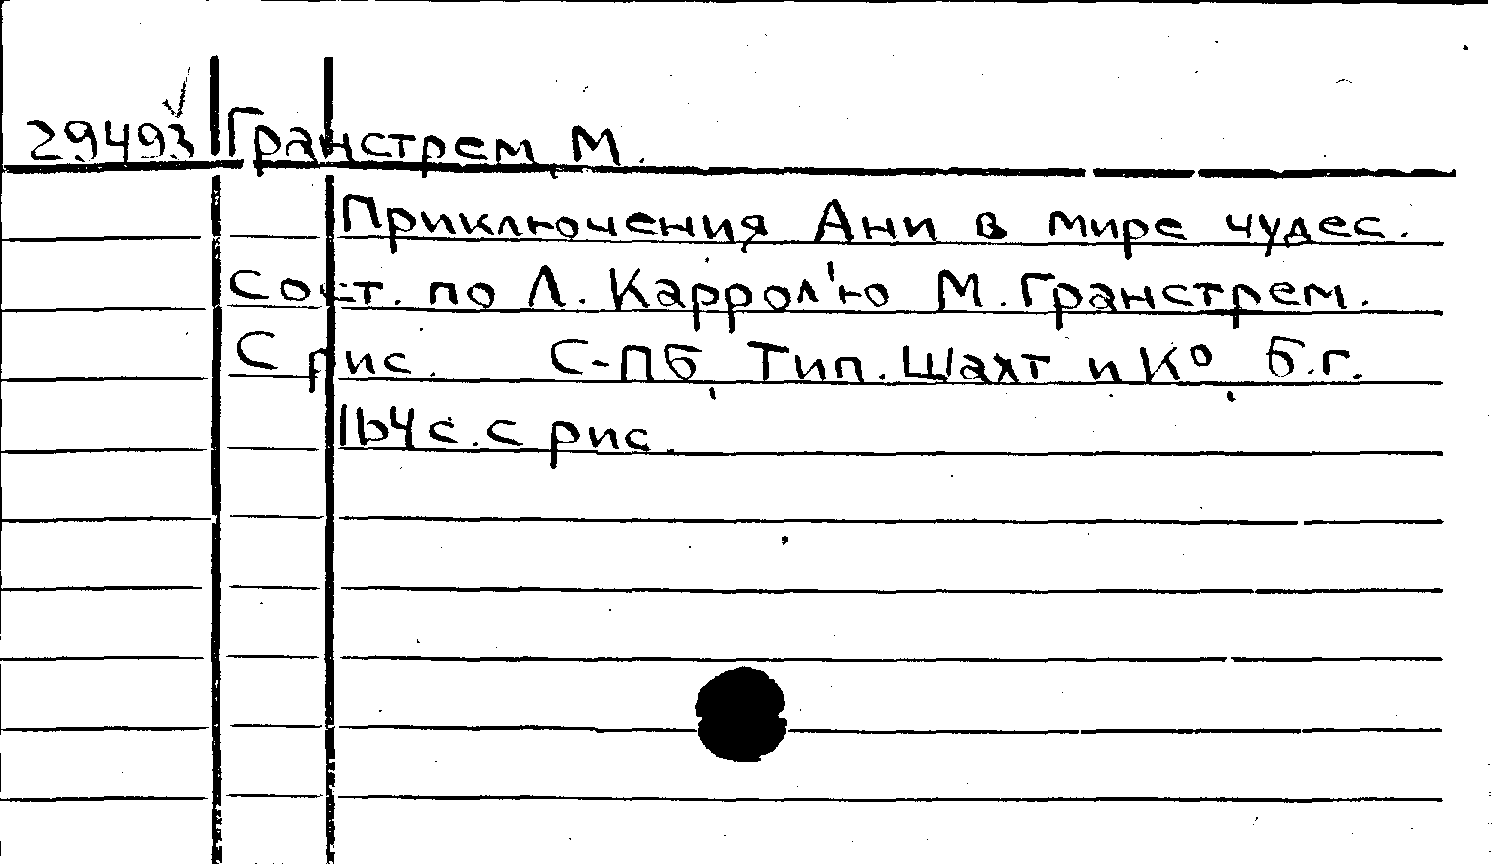 29493 Гранстрем, М.
Приключения Ани в мире чудес.
Сост. по Л. Каррол'ю М. Гранстрем.
С рис. С-ПБ, Тип. Шахт и К°, б.г.
164 с. с рис.